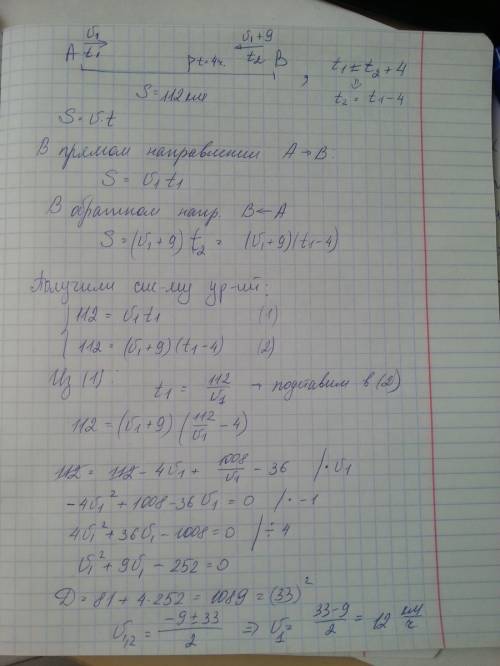 v₁ v₁+9
A t₁ t=4ч. t₂ B , t₁ = t₂ + 4
S=112 км t₂ = t₁ - 4
S = v·t
В прямом направлении A → B.
S = v₁ t₁
В обратном напр. B ← A
S = (v₁+9) t₂ = (v₁+9)(t₁-4)
Получили сис-му ур-ий:
112 = v₁ t₁ (1)
112 = (v₁+9)(t₁-4) (2)
Из (1) t₁ = 112/v₁ → подставим в (2)
112 = (v₁+9)(112/v₁ - 4)
112 = 112 - 4v₁ + 1008/v₁ - 36 /· v₁
-4v₁² + 1008 - 36v₁ = 0 /· -1
4v₁² + 36v₁ - 1008 = 0 /÷ 4
v₁² + 9v₁ - 252 = 0
D = 81 + 4·252 = 1089 = (33)²
v₁,₂ = (-9 ± 33)/2 ⇒ v₁ = (33-9)/2 = 12 км/ч